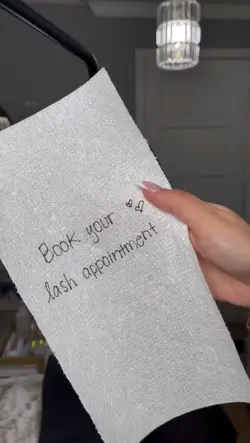 Book your ♡♡
lash appointment